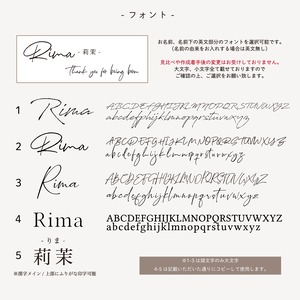 - フォント -
Rima - 莉茉 -
Thank you for being born
お名前、名前下の英文部分のフォントを選択可能です。
(名前の由来をお入れする場合は英文無し)
見比べや作成着手後の変更はお受けしておりません。
大文字、小文字全て載せておりますので
ご確認の上、ご選択をお願い致します。
1 Rima ABCDEFGHIJKLMNOPQRSTUVWXYZ
abcdefghijklmnopqrstuvwxyz
2 Rima ABCDEFGHIJKLMNOPQRSTUVWXYZ
abcdefghijklmnopqrstuvwxyz
3 Rima ABCDEFGHIJKLMNOPQRSTUVWXYZ
abcdefghijklmnopqrstuvwxyz
4 Rima ABCDEFGHIJKLMNOPQRSTUVWXYZ
abcdefghijklmnopqrstuvwxyz
- りま -
5 莉茉
※漢字メイン / 上部にふりがな印字可能
※1-3 は頭文字のみ大文字
4-5 は記載いただいた通りにコピーして使用します。